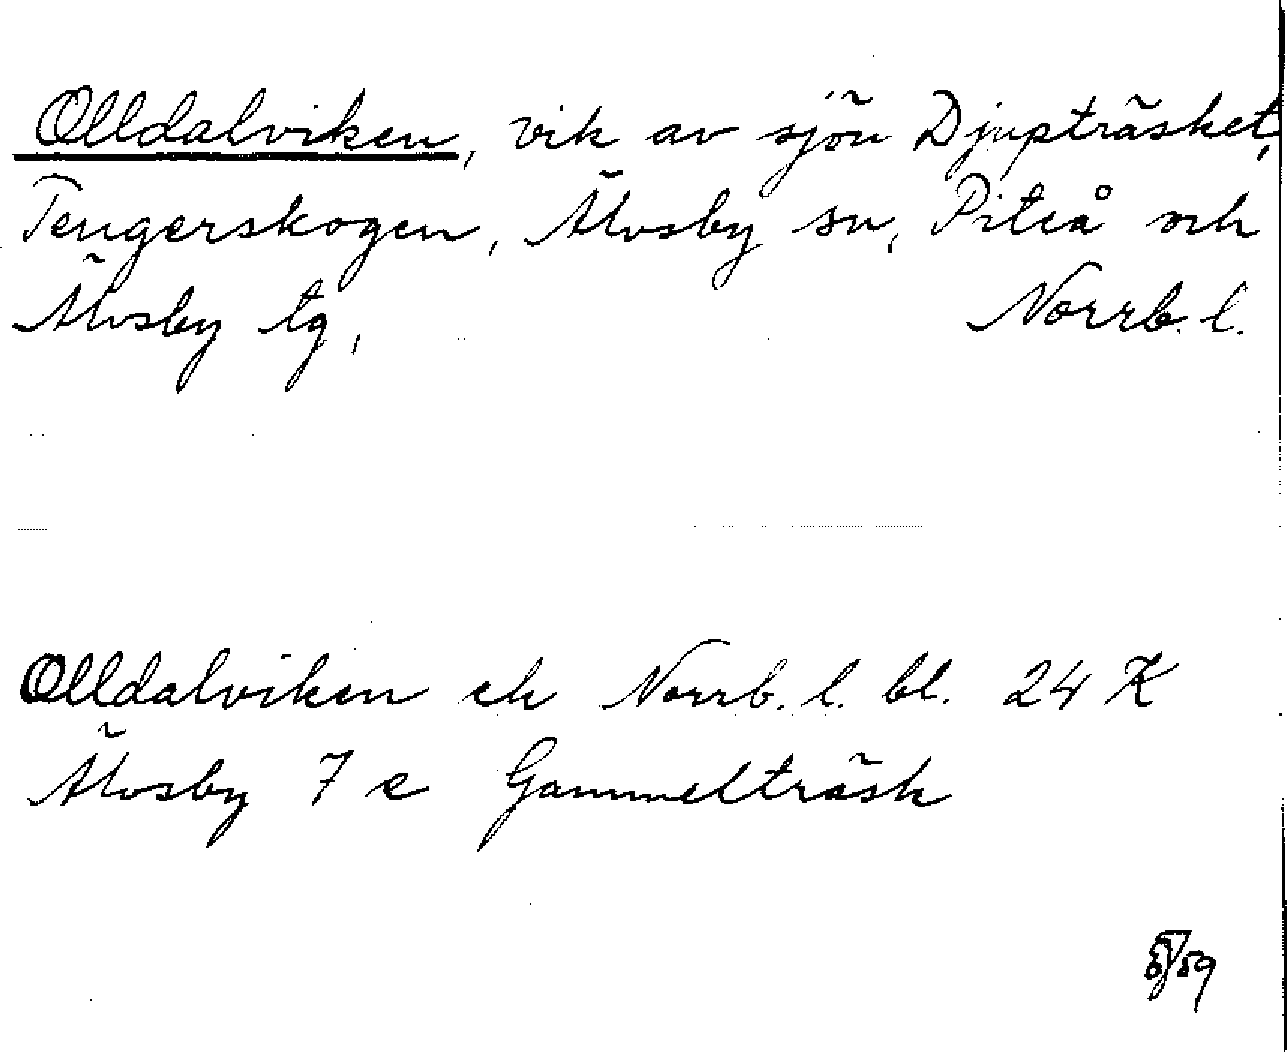 Olldalviken, vik av sjön Djupträsket,
Tengerskogen, Älvsby sn, Piteå och
Älvsby tg, Norrb. l.
Olldalviken ek Norrb. l. bl. 24 K
Älvsby 7 e Gammelträsk